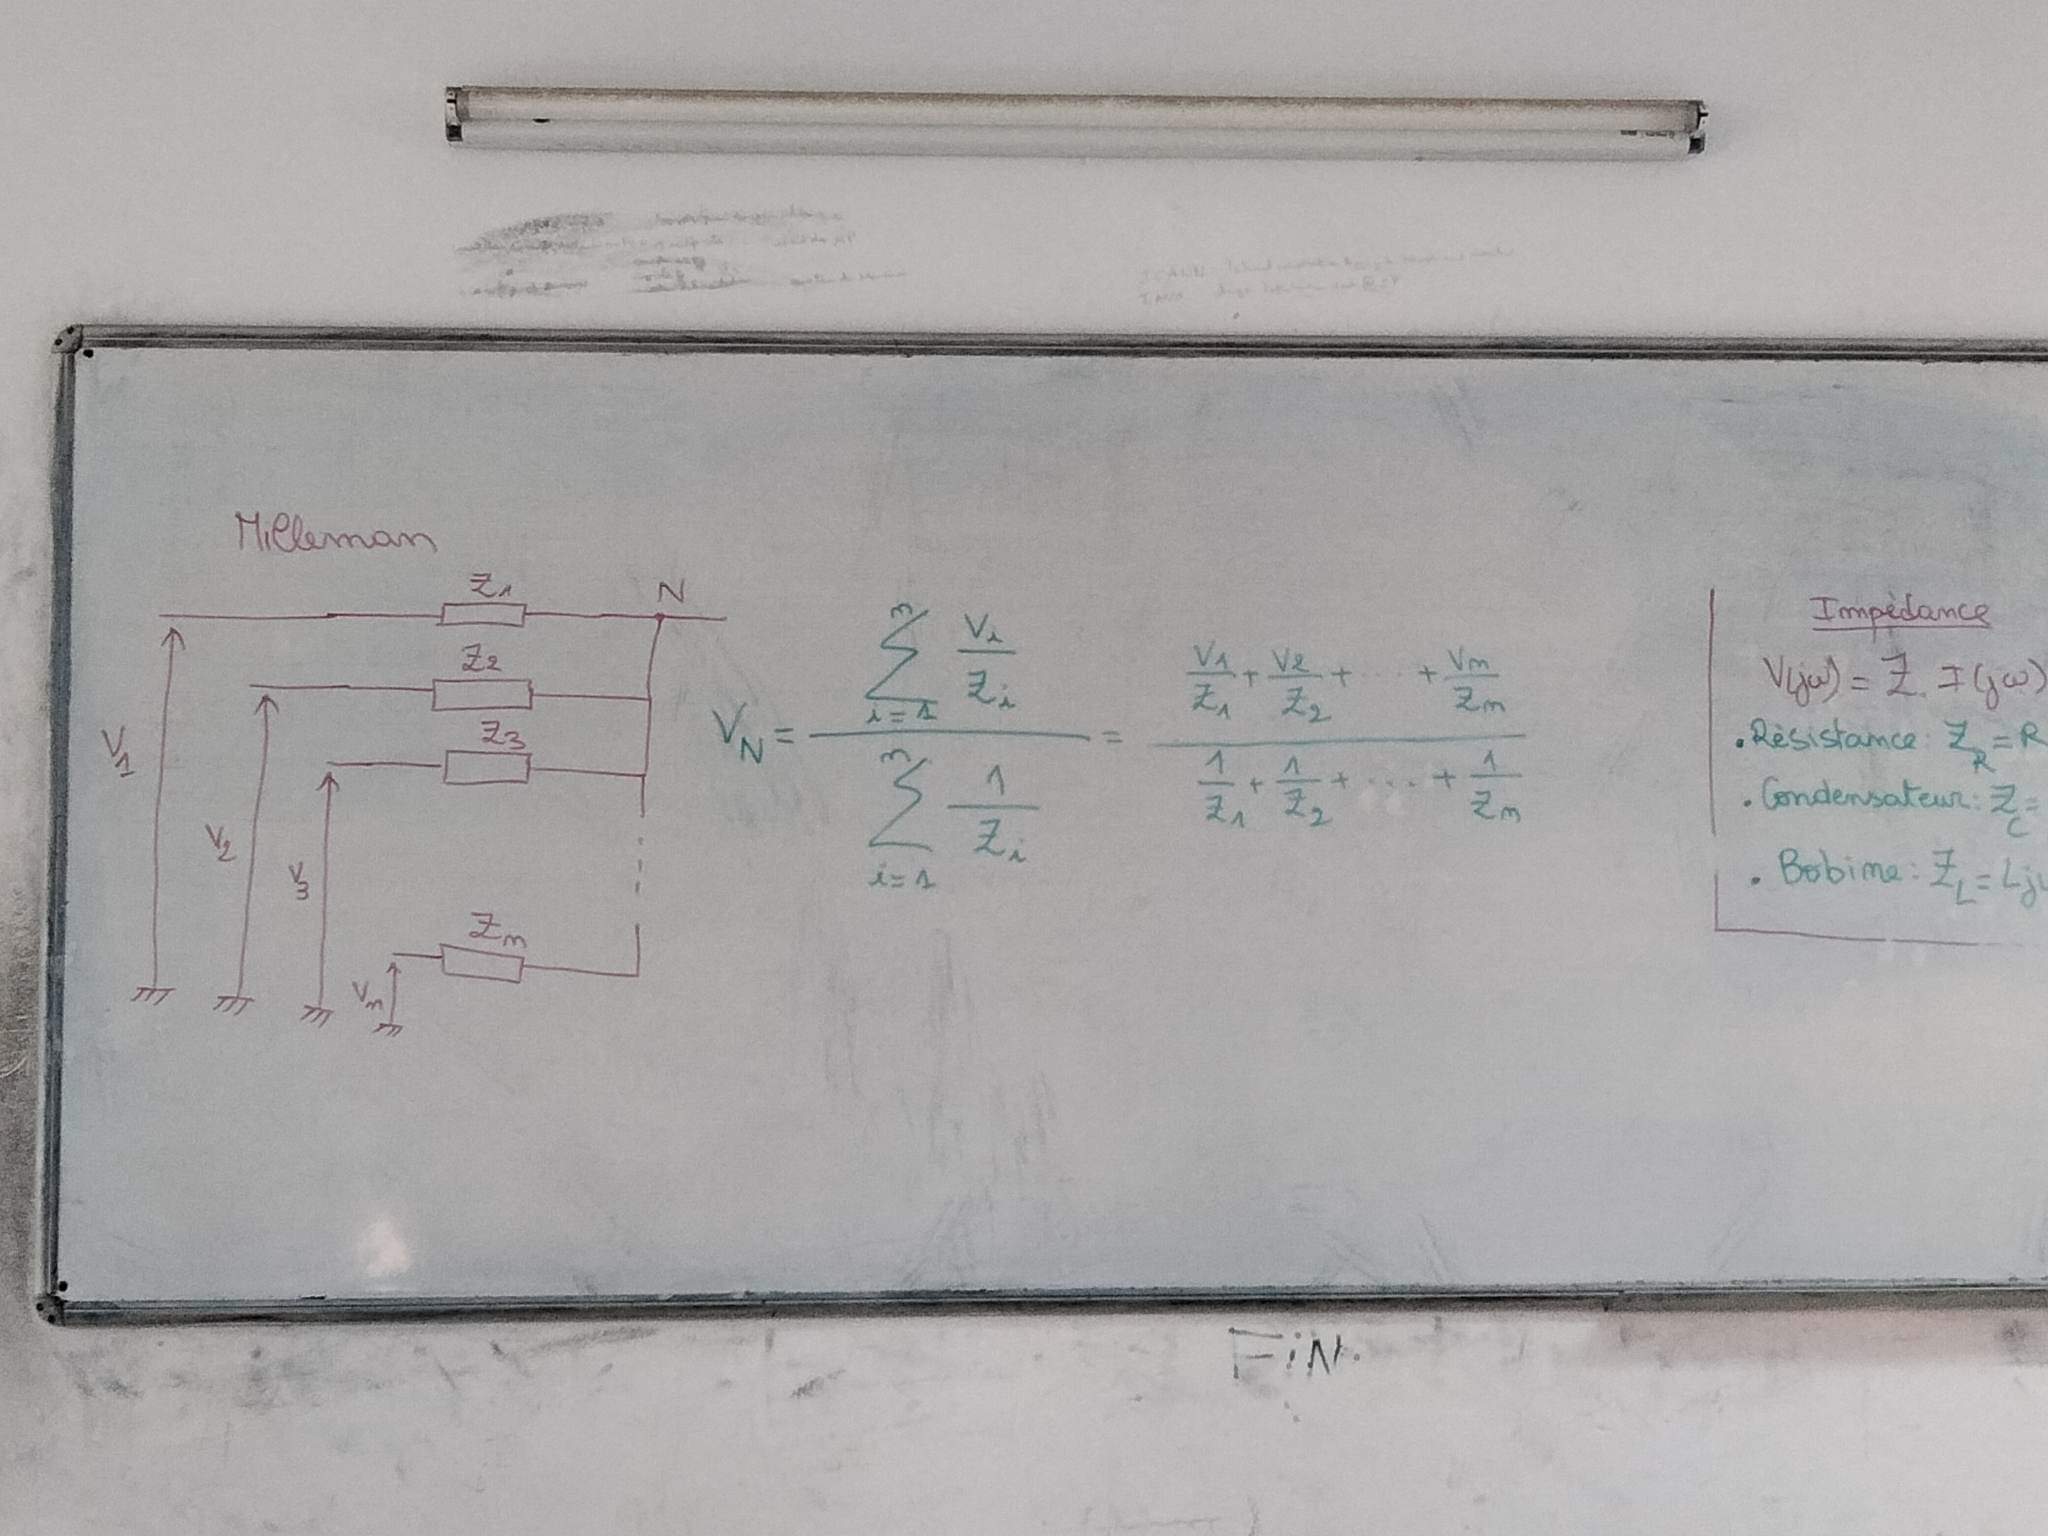 Milleman
Z1
N
Z2
Z3
V1
V2
V3
Zn
Vn
V_N = \frac{\sum_{i=1}^{n} \frac{V_i}{Z_i}}{\sum_{i=1}^{n} \frac{1}{Z_i}} = \frac{\frac{V_1}{Z_1} + \frac{V_2}{Z_2} + \cdots + \frac{V_n}{Z_n}}{\frac{1}{Z_1} + \frac{1}{Z_2} + \cdots + \frac{1}{Z_n}}
Impédance
V(jω) = Z. I(jω)
. Résistance: Z_R = R
. Condensateur: Z_C =
. Bobine: Z_L = Ljω
FiN.